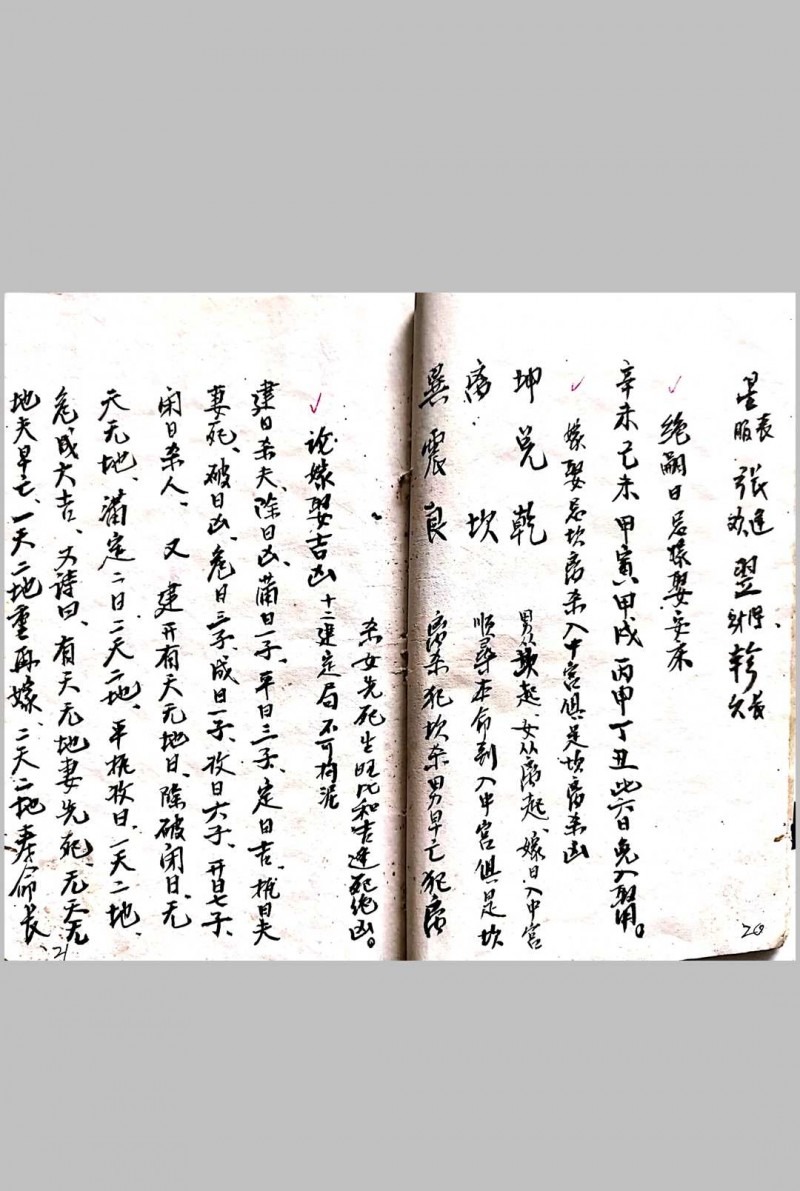 星 張 翌 軫
绝嗣日忌嫁娶安床
辛未己未甲寅甲戌丙申丁丑此六日克入取用。
嫁娶忌坎离杀入中宫俱是坎离杀凶
坤兑乾 男坎起、女从离起、嫁日入中宫
离 坎 顺尋本命到入中宫俱是坎
巽震艮 离杀犯坎杀男早亡犯离
20
杀女先死生旺比和吉逢死绝凶。
论嫁娶吉凶 十二建定局不可拘泥
建日杀夫、除日凶、满日一子、平日三子、定日吉、执日夫
妻死、破日凶、危日三子、成日一子、收日六子、开日七子、
闭日杀人、又 建开有天无地日、除破闭日、无
天无地、满定二日二天一地、平执收日、一天二地、
危成大吉、又詩曰、有天无地妻先死、无天无
地夫早亡、一天二地重再嫁、二天一地寿命长
21